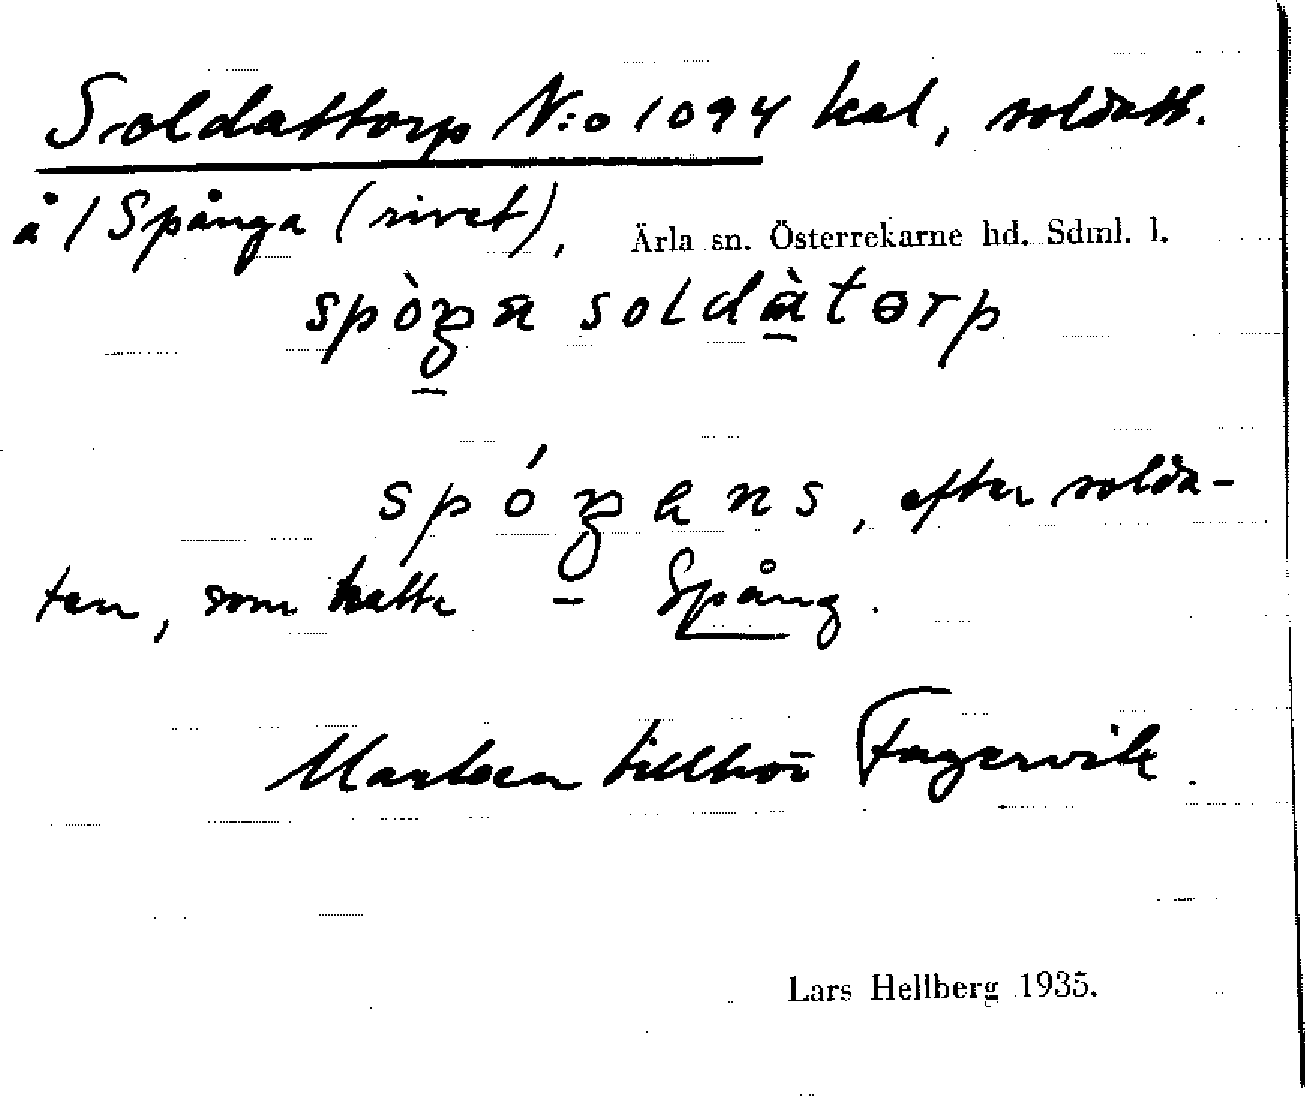 Soldattorp N:o 1094 kal, soldatt.
å /Spånga (rivet), Ärla sn. Österrekarne hd. Sdml. l.
spòŋa soldàtɵrp
spóŋens, efter solda-
ten, som hette Spång.
Marken tillhör Fagervik.
Lars Hellberg 1935.